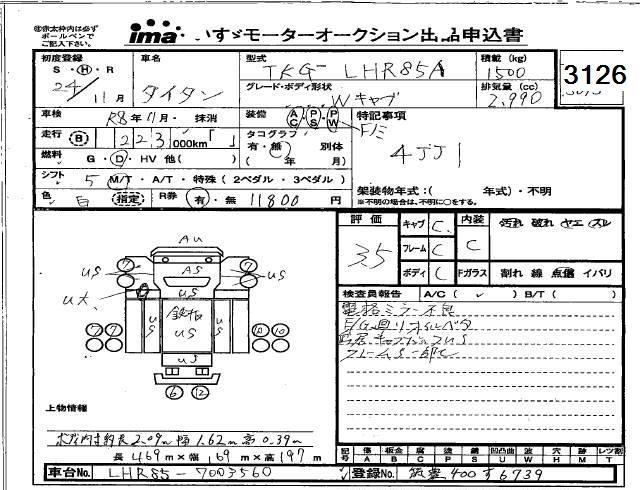 ㊟赤太枠内は必ず
ボールペンで
ご記入下さい。
ima いすゞモーターオークション出品申込書
初度登録
S・H・R
24/11月
車名
タイタン
型式
TKG-LHR85A
グレード・ボディ形状
Wキャブ
積載 (kg)
1500
排気量 (cc)
2,990
3126
車検
R8年11月・抹消
装備
AC・PS・PW
特記事項
走行 B 223 000km
タコグラフ
有・無 別体
( 年 月)
4JJ1
燃料 G・D・HV 他( )
シフト 5 M/T・A/T・特殊 (2ペダル・3ペダル)
架装物年式:( 年式)・不明
※不明の場合は、不明に○をする。
色 白 指定
R券 有・無 11800 円
評価
35
キャブ C
フレーム C
ボディ C
内装
C
Fガラス
汚れ 破れ ヤエ スレ
割れ 線 点傷 イバリ
検査員報告 A/C( ✓ ) B/T( )
電格ミラー不良
AU
AS
US
US
US
US
US
鉄板
US
US
7
7
7
7
10
10
6
12
上物情報
ボディ内寸約長2.09m幅1.62m高0.39m
長 469m×幅 169m×高 197m
記号
傷 A
板金 B
腐 C
塗 P
錆 S
凹凸曲 U
波 W
穴 H
跡 M
レツ割 T
車台No. LHR85-7003560
登録No. 飯豊400す6739